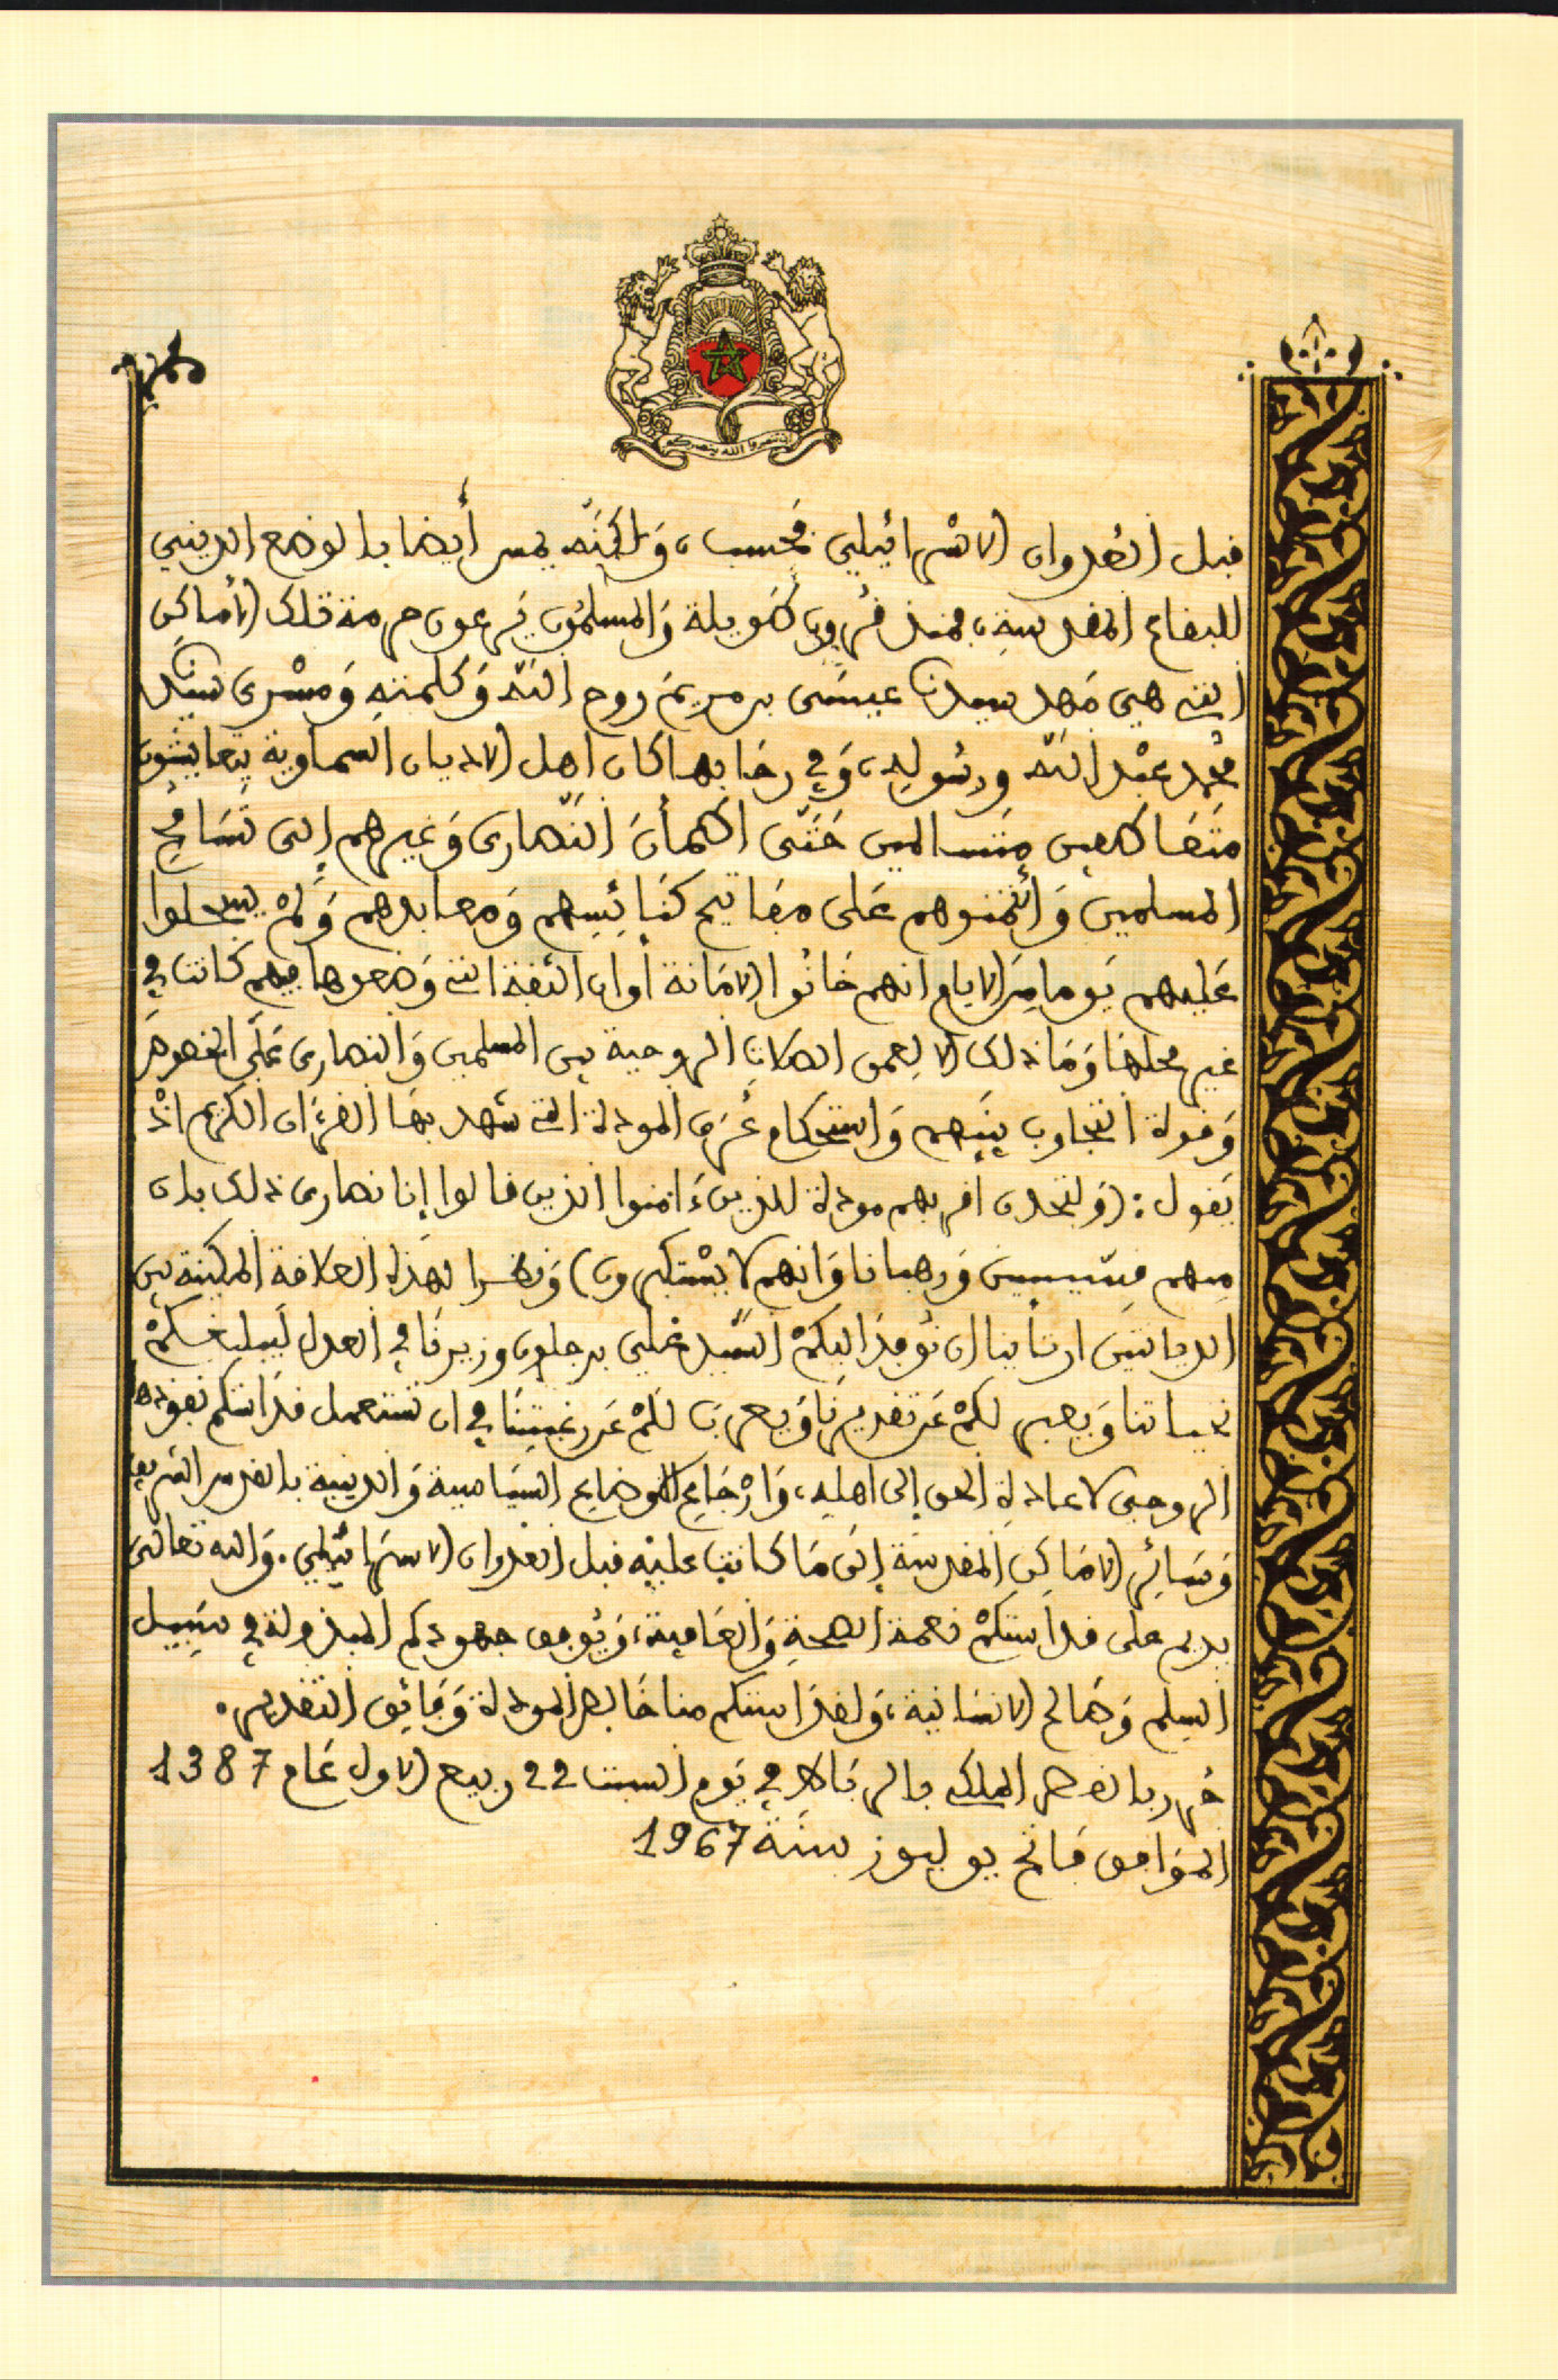 إن تنصروا الله ينصركم
قبل العدوان الاسْرائيلي فحسب، وَلكِنَّه يمس أيضا بالوضع الديني
للبقاع المقدسةِ، فمنذ قُرونٍ طَويلة وَالمسلمُون يَرعون حرمة تلك الأماكِن
التي هي مَهد سيدنا عيسَى بن مريمَ روح اللّه وَكلمتهِ وَمسْرى سيدنا
محُمد عبْد اللّه ورسُولِهِ، وَفي رحَابهـا كان اهل الاديان السماوية يتعايشون
متَضاطعين متَسالمين حَتَّى اطمأنَ النّصارى وَغيرهم إلى تَسَامُح
المسلمين وَائتمنوهم عَلى مفاتيح كنَائِسِهم وَمعابدهم وَلمْ يسجلوا
عَليهم يَوما مِنَ الايام انهم خَانُوا الامَانة أو ان الثقة التي وَضعوها فيهم كانت في
غير محلهَا وَمَا ذلك الا لِعمق الصلات الروحية بين المسلمين وَالنصارى عَلَى الخصوص
وَقوة التجاوب بينَهم وَاستحكام عُرَى المودة التي شهد بهَا القرءَان الكريم اذْ
يَقول: (وَلتجدن اقربهم مودة للذينَ ءَامنوا الذين قالوا إنا نصارى ذلك بان
مِنهم قِسّيسين وَرهبانا وَانهم لا يسْتكبرون) وَنظرا لهَذه العلاقة المكينة بين
الديانتين ارتأينا ان نُوفِدَ اليكمْ السَّيد عَلي بن جلون وزيرنَا في العدل لَيبلغكمْ
تحياتنا وَيعبر لكمْ عَن تقديرنَا وَيعرب لكمْ عَن رغبتنَا في ان تستعمل قدَاستكم نفوذها
الروحي لاعادة الحق إلى اهله، وَارْجَاع الاوضاع السيَاسية وَالدينية بالقدس الشريف
وَسَائِر الامَاكِن المقدسَة إلى مَا كانت عليْه قبل العدوان الاسرَائيلي. وَالله تعالى
يديم على قداستكمْ نعمة الصحةِ وَالعَافية، وَيُوفق جهودكم المبذولة في سَبِيل
السلم وَصَالح الانسَانية، وَلقدَاستكم منا خَالص المودة وَفَائق التقدير.
حُرر بالقصر الملكي بالربَاط في يَوم السبت 22 ربيع الاول عَام 1387
الموَافق فَاتح يوليوز سنَة 1967